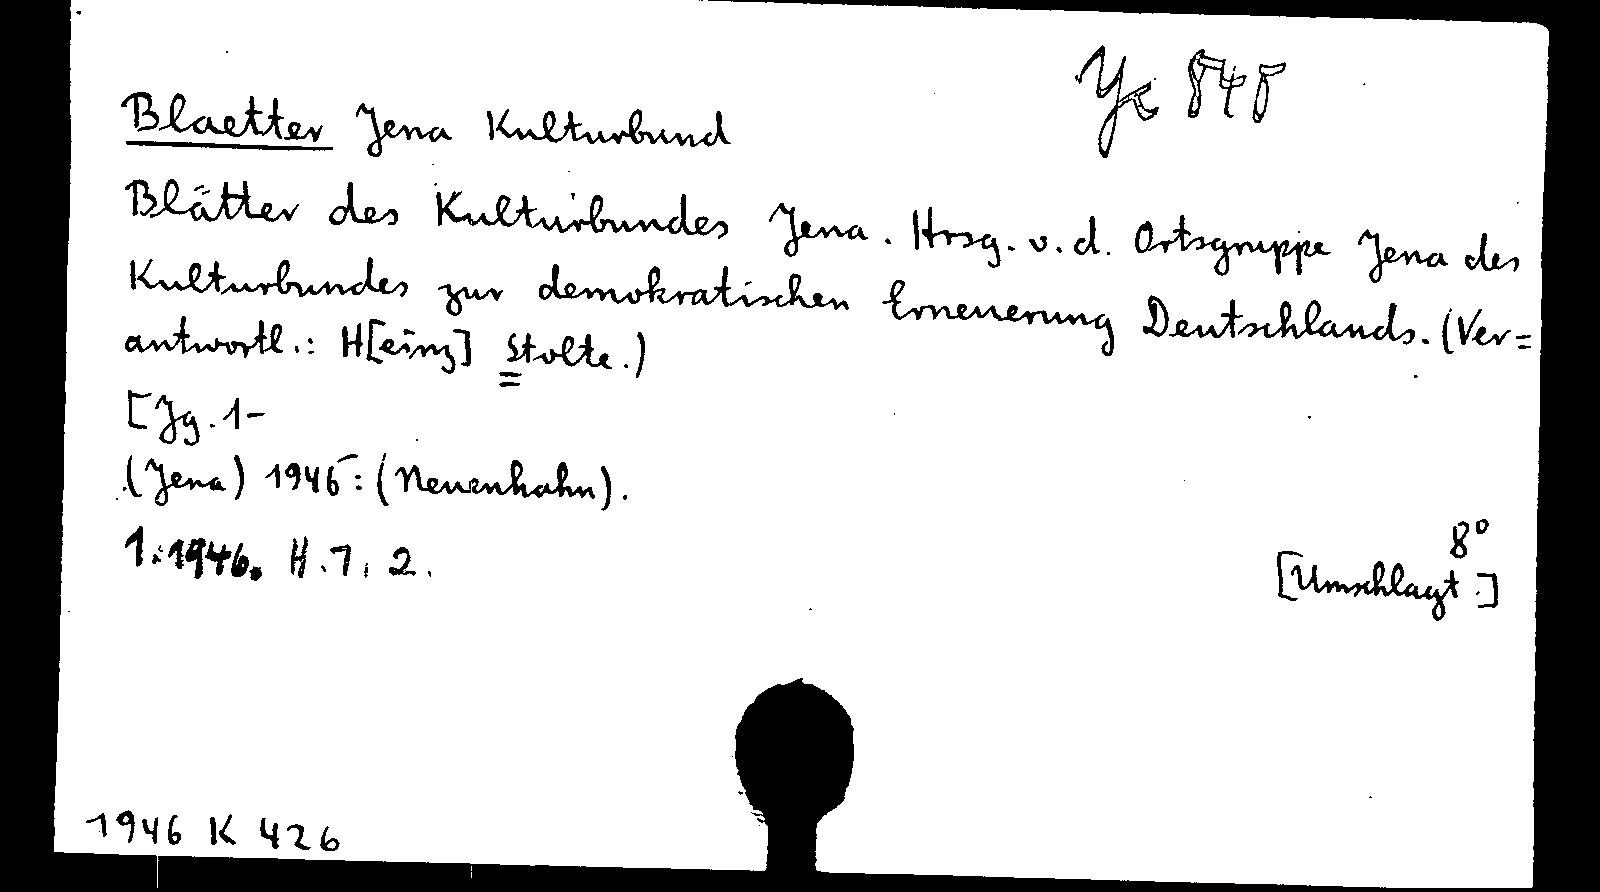 Yc 845
Blaetter Jena Kulturbund
Blätter des Kulturbundes Jena. Hrsg. v. d. Ortsgruppe Jena des
Kulturbundes zur demokratischen Erneuerung Deutschlands. (Ver=
antwortl.: H[einz] Stolte.)
[Jg. 1-
(Jena) 1946: (Neuenhahn).
1. 1946. H. 1, 2.
8°
[Umschlagt.]
1946 K 426